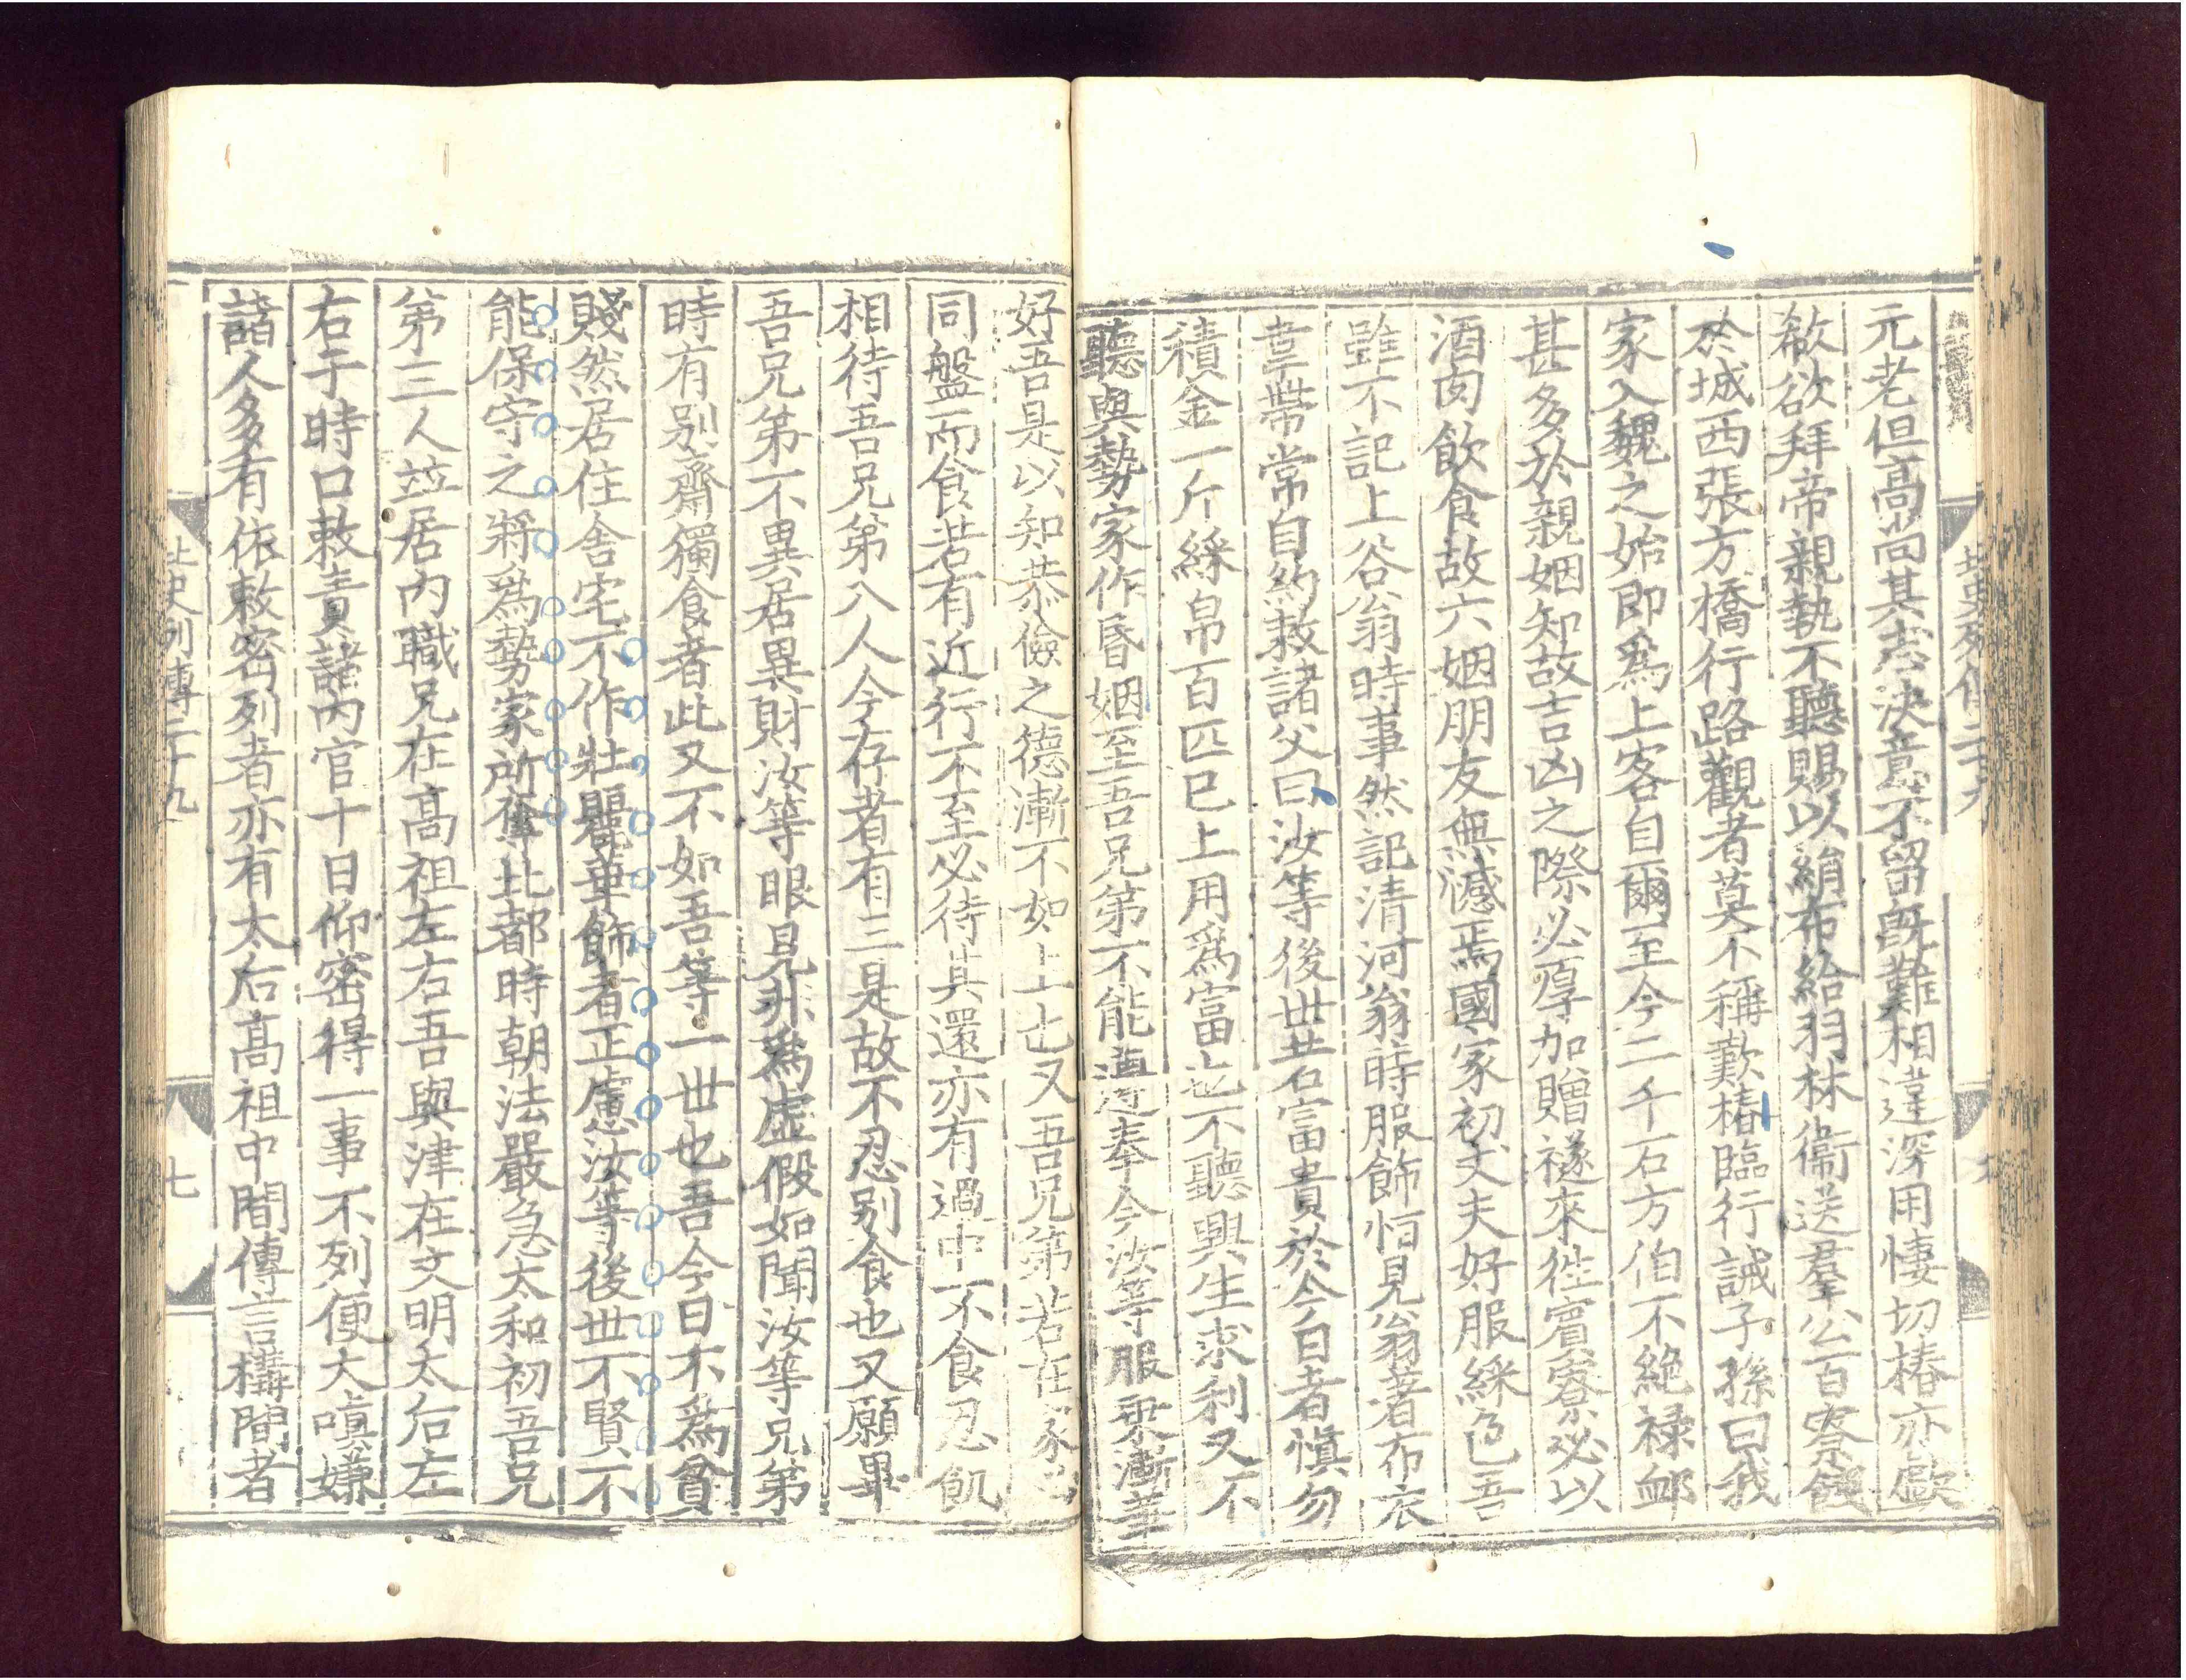 北史列傳二十九
元老但高尚其志決意不留旣難相違深用悽切椿亦歔
欷欲拜帝親執不聽賜以絹布給羽林衞送羣公百寮餞
於城西張方橋行路觀者莫不稱歎椿臨行誡子孫曰我
家入魏之始即爲上客自爾至今二千石方伯不絶禄䘏
甚多於親姻知故吉凶之際必厚加贈襚來徃賓寮必以
酒肉飲食故六姻朋友無憾焉國家初丈夫好服綵色吾
雖不記上谷翁時事然記清河翁時服飾恒見翁著布衣
韋帶常自約敕諸父曰汝等後世若富貴於今日者愼勿
積金一斤綵帛百匹已上用爲富也不聽興生求利又不
聽與勢家作昏姻至吾兄弟不能遵奉今汝等服乗漸華
好吾是以知恭儉之德漸不如上也又吾兄弟若在家必
同盤而食若有近行不至必待其還亦有過中不食忍飢
相待吾兄弟八人今存者有三是故不忍别食也又願畢
吾兄弟不異居異財汝等眼見非爲虚假如聞汝等兄弟
時有别齋獨食者此又不如吾等一世也吾今日不爲貧
賤然居住舎宅不作壯麗華飾者正慮汝等後世不賢不
能保守之將爲勢家所奪北都時朝法嚴急太和初吾兄
第三人並居内職兄在高祖左右吾與津在文明太后左
右于時口敕責諸内官十日仰密得一事不列便大嗔嫌
諸人多有依敕密列者亦有太后高祖中間傳言構間者
北史列傳二十九
七